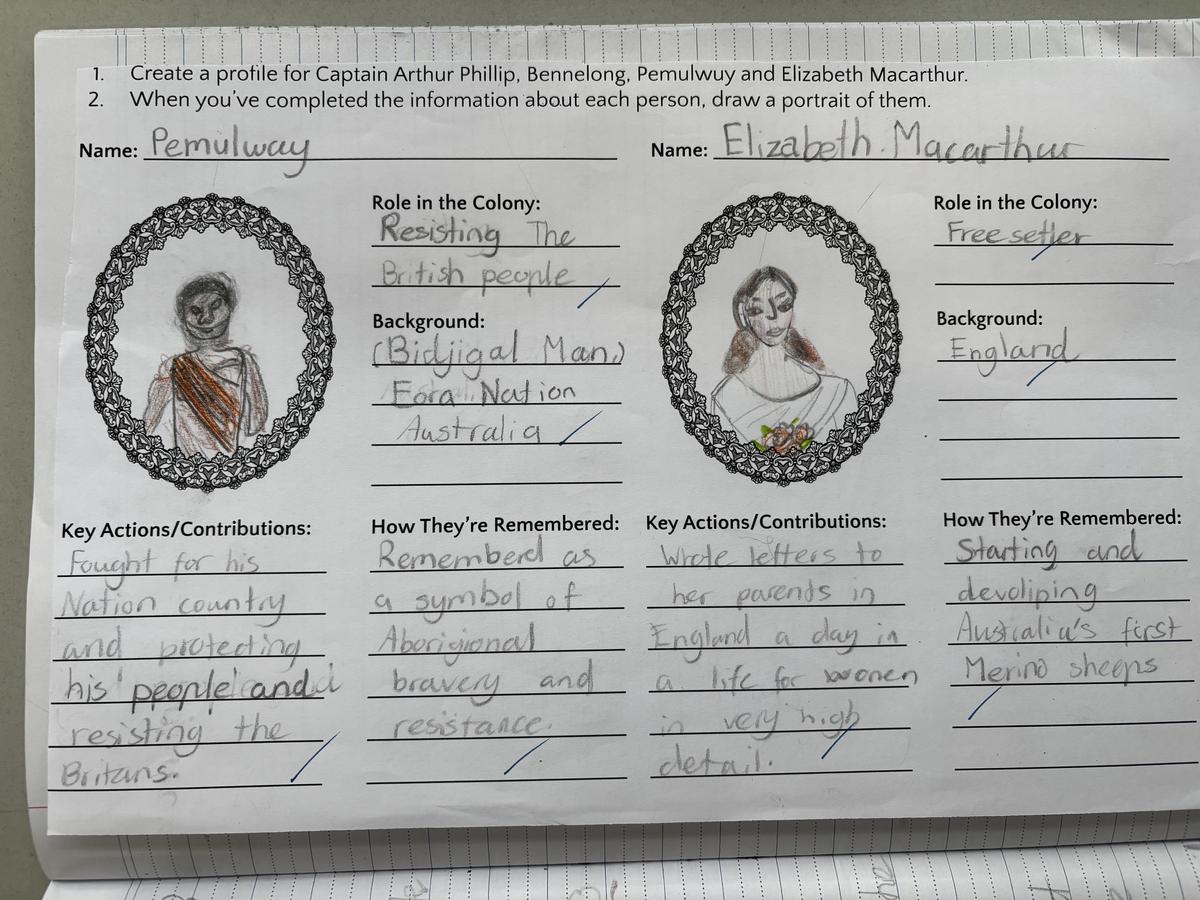 1. Create a profile for Captain Arthur Phillip, Bennelong, Pemulwuy and Elizabeth Macarthur.
2. When you've completed the information about each person, draw a portrait of them.
Name: Pemulway
Role in the Colony:
Resisting The
British people
Background:
(Bidjigal Man)
Eora Nation
Australia
Key Actions/Contributions:
Fought for his
Nation country
and protecting
his people and
resisting the
Britans.
How They're Remembered:
Rememberd as
a symbol of
Aborigional
bravery and
resistance.
Name: Elizabeth Macarthur
Role in the Colony:
Free setler
Background:
England
Key Actions/Contributions:
Wrote letters to
her parents in
England a day in
a life for women
in very high
detail.
How They're Remembered:
Starting and
devoliping
Australia's first
Merino sheeps